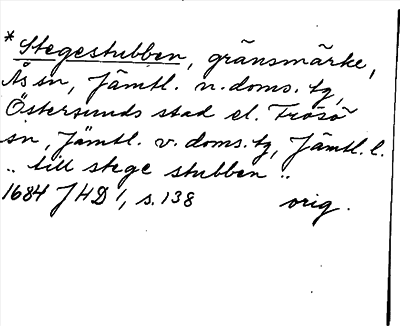 * Stegestubben, gränsmärke,
Ås sn, Jämtl. n. doms. tg,
Östersunds stad el. Frösö
sn, Jämtl. v. doms. tg, Jämtl. l.
.. till stege stubben ..
1684 JHD 1, s. 138 orig.